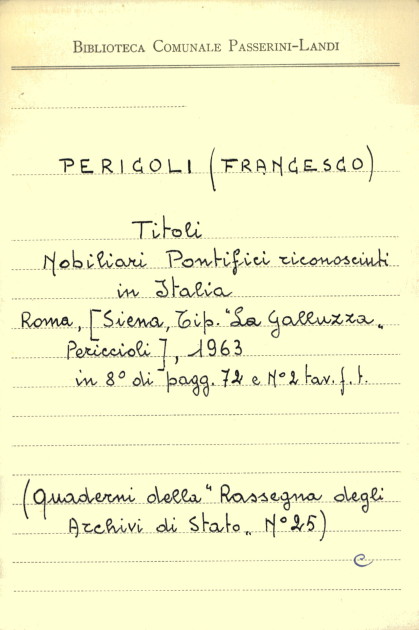 BIBLIOTECA COMUNALE PASSERINI-LANDI
PERICOLI (FRANCESCO)
Titoli
Nobiliari Pontifici riconosciuti
in Italia
Roma, [Siena, Tip. "La Galluzza„
Periccioli], 1963
in 8° di pagg. 72 e N° 2 tav. f. t.
(Quaderni della "Rassegna degli
Archivi di Stato„ N° 25)
C